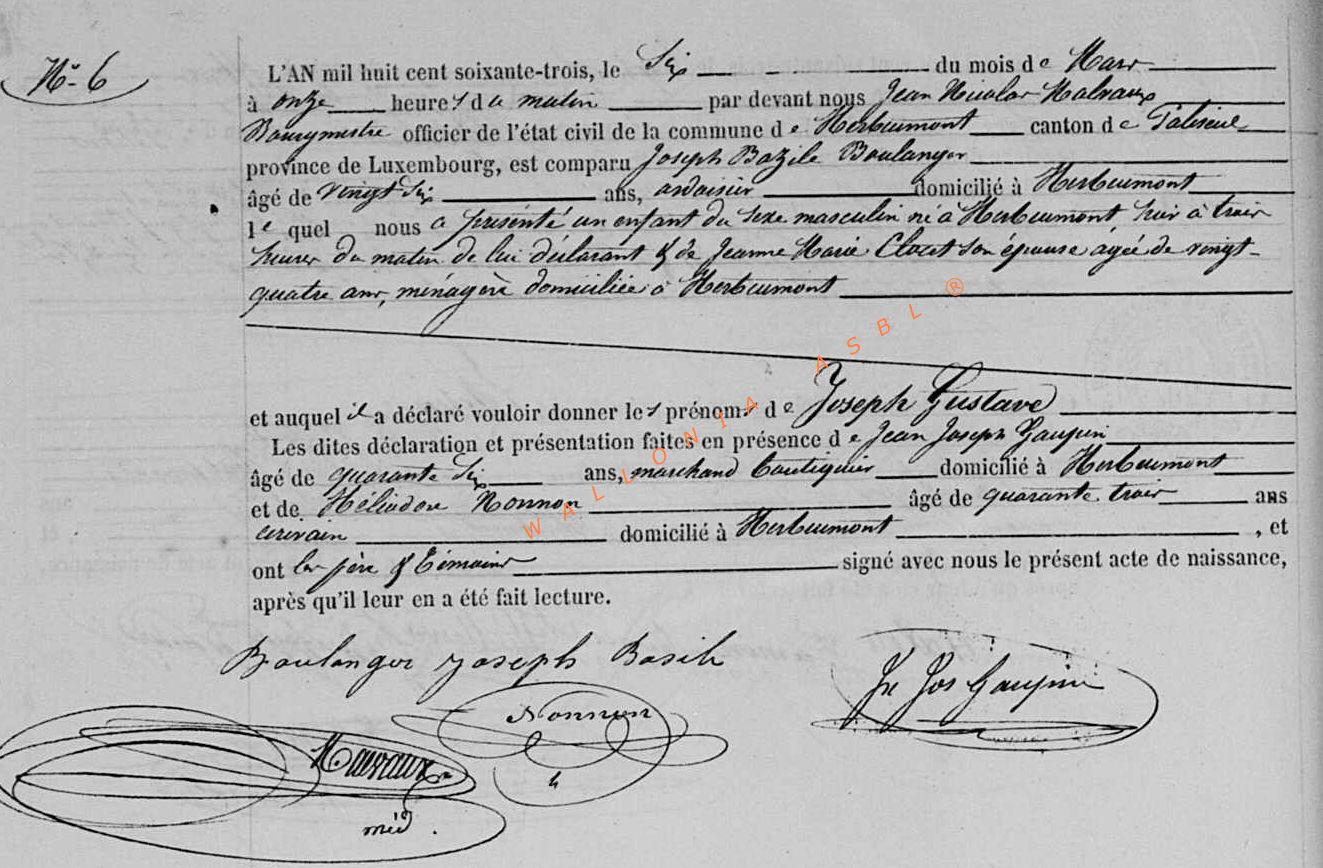 N° 6
L'AN mil huit cent soixante-trois, le Six du mois de Mars
à onze heures du matin par devant nous Jean Nicolas Malvaux
Bourgmestre officier de l'état civil de la commune de Herbeumont canton de Paliseul
province de Luxembourg, est comparu Joseph Bazile Boulanger
âgé de vingt six ans, ardoisier domicilié à Herbeumont
lequel nous a présenté un enfant du sexe masculin né à Herbeumont hier à trois
heures du matin de lui déclarant & de Jeanne Marie Closet son épouse âgée de vingt-
quatre ans, ménagère domiciliée à Herbeumont
et auquel il a déclaré vouloir donner les prénoms de Joseph Gustave
Les dites déclaration et présentation faites en présence de Jean Joseph Gaupin
âgé de quarante six ans, marchand boutiquier domicilié à Herbeumont
et de Héliodore Nonnon âgé de quarante trois ans
écrivain domicilié à Herbeumont , et
ont les père & témoins signé avec nous le présent acte de naissance,
après qu'il leur en a été fait lecture.
Boulanger Joseph Basile
Jn Jos Gaupin
Nonnon
h
Malvaux
méd.
WALLONIA ASBL ®